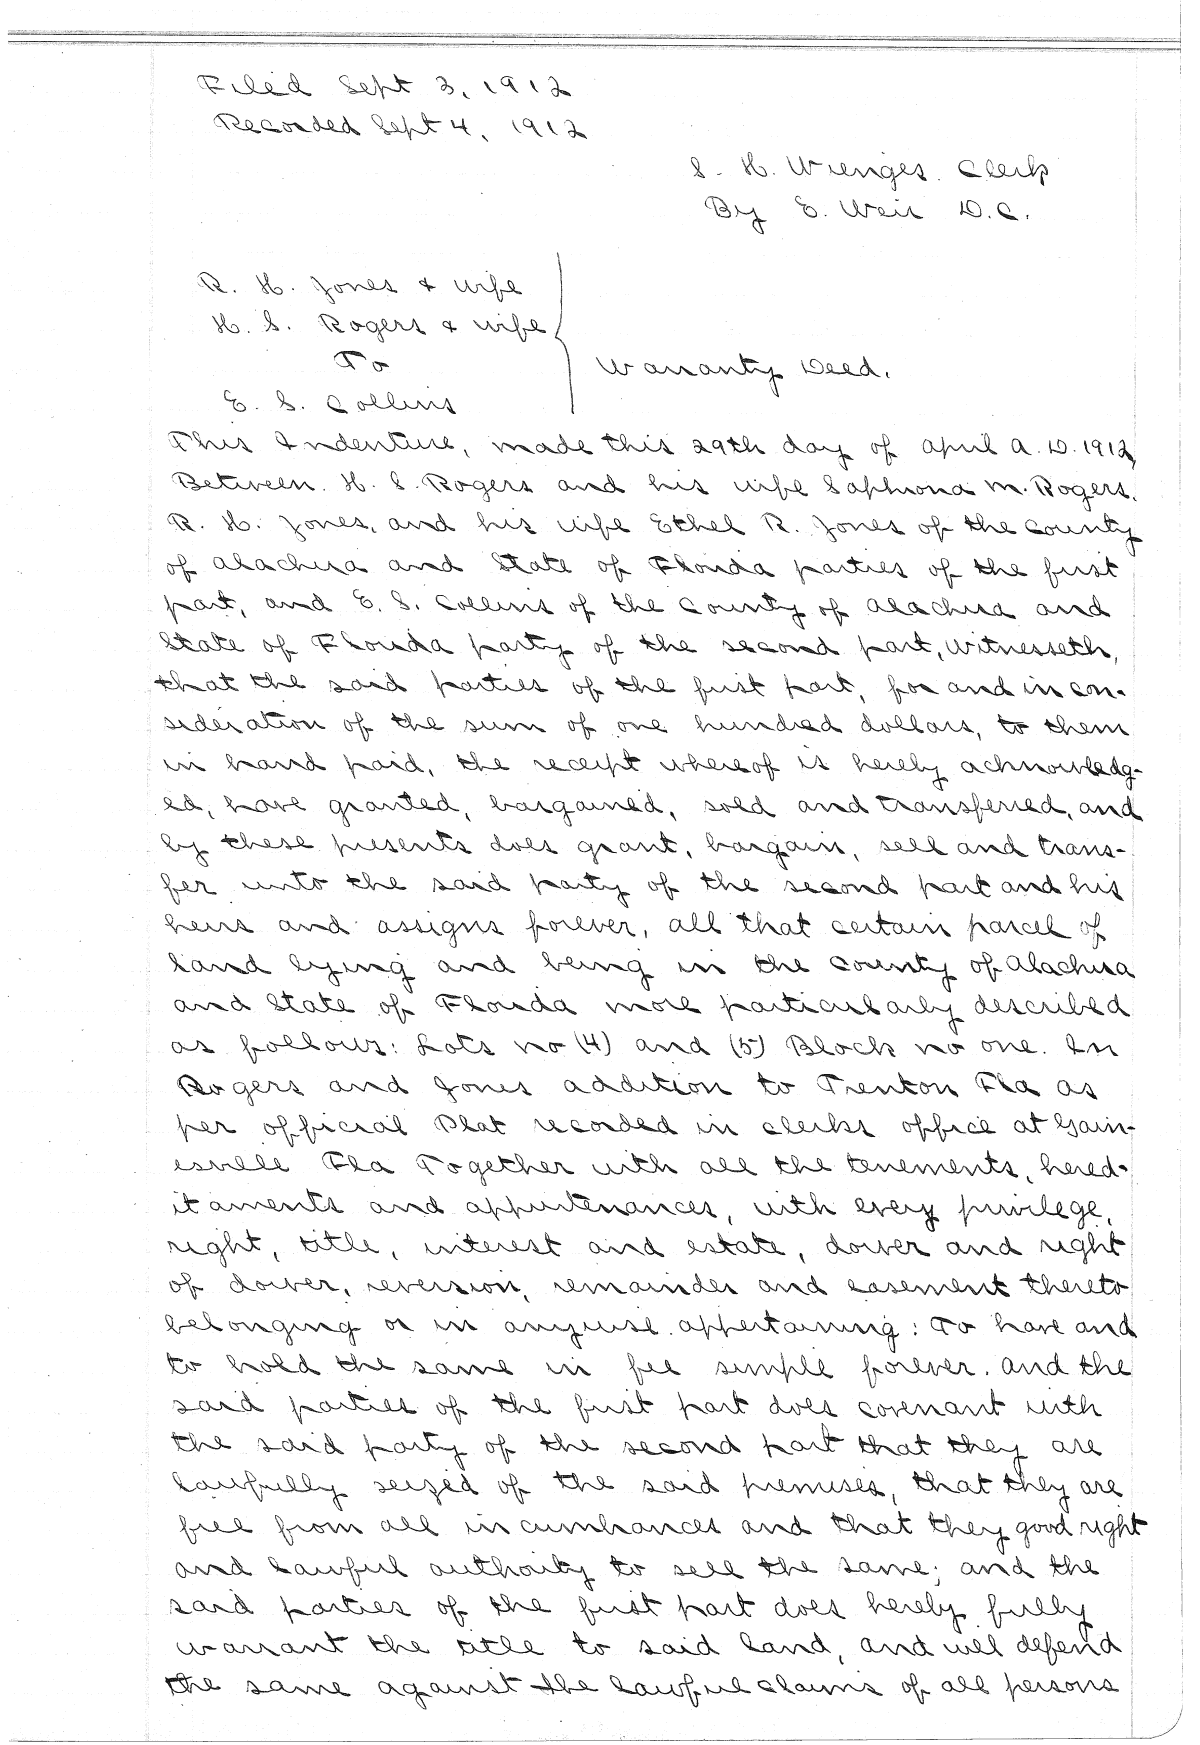 Filed Sept 3, 1912
Recorded Sept 4, 1912
S. H. Wienges. Clerk
By E. Weir D.C.
R. H. Jones & wife
H. S. Rogers & wife
To
Warranty Deed.
E. S. Collins
This Indenture, made this 29th day of April A.D. 1912,
Between. H. S. Rogers and his wife Saphrona M. Rogers.
R. H. Jones, and his wife Ethel R. Jones of the County
of Alachua and State of Florida parties of the first
part, and E. S. Collins of the County of Alachua and
State of Florida party of the second part, Witnesseth,
that the said parties of the first part, for and in con-
sideration of the sum of one hundred dollars, to them
in hand paid, the receipt whereof is hereby acknowledg-
ed, have granted, bargained, sold and transferred, and
by these presents does grant, bargain, sell and trans-
fer unto the said party of the second part and his
heirs and assigns forever, all that certain parcel of
land lying and being in the County of Alachua
and State of Florida more particularly described
as follows: Lots no (4) and (5) Block no one. In
Rogers and Jones addition to Trenton Fla as
per official Plat recorded in clerks office at Gain-
esville Fla Together with all the tenements, hered-
itaments and appurtenances, with every privilege,
right, title, interest and estate, dower and right
of dower, reversion, remainder and easement thereto
belonging or in anywise appertaining: To have and
to hold the same in fee simple forever. And the
said parties of the first part does covenant with
the said party of the second part that they are
lawfully seized of the said premises, that they are
free from all incumbrances and that they good right
and lawful authority to sell the same; and the
said parties of the first part does hereby fully
warrant the title to said land, and will defend
the same against the lawful claims of all persons